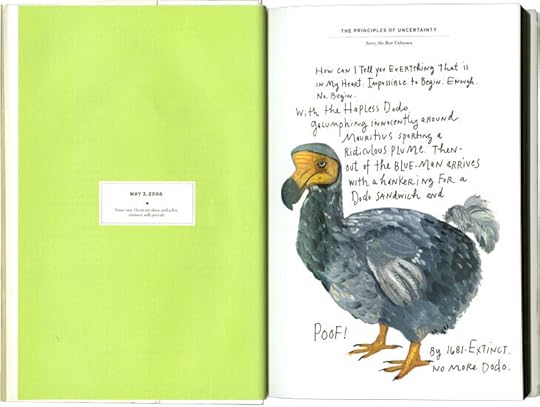 MAY 3, 2006
THE PRINCIPLES OF UNCERTAINTY
Sorry, the Rest Unknown
How can I Tell you EVERYTHING That is
in My Heart. Impossible to Begin. Enough.
No. Begin.
With the Hapless Dodo
galumphing innocently around
Mauritius sporting a
Ridiculous Plume. Then-
out of the BLUE-Man ARRIVES
with a hankering For a
Dodo Sandwich and
POOF!
By 1681-EXTINCT.
No More Dodo.